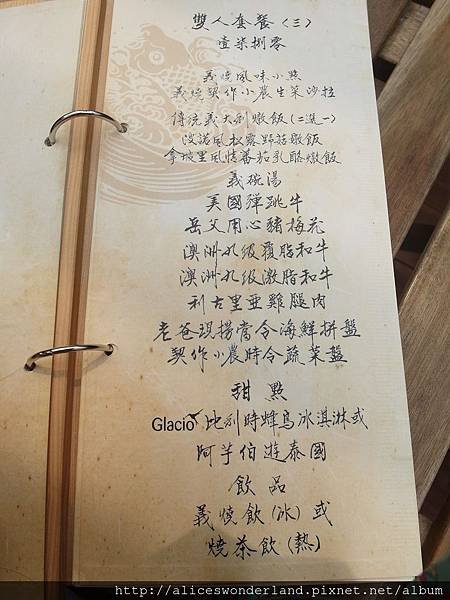 雙人套餐(三)
壹柒捌零
義燒風味小點
義燒契作小農生菜沙拉
傳統義大利燉飯(二選一)
波諾風松露野菇燉飯
拿坡里風情蕃茄乳酪燉飯
義碗湯
美國彈跳牛
岳父用心豬梅花
澳洲九級覆脂和牛
澳洲九級激脂和牛
利古里亞雞腿肉
老爸現撈當令海鮮拼盤
契作小農時令蔬菜盤
甜點
Glacio 比利時蜂鳥冰淇淋或
阿芋伯遊泰國
飲品
義燒飲(冰)或
燒茶飲(熱)
http://aliceswonderland.pixnet.net/album